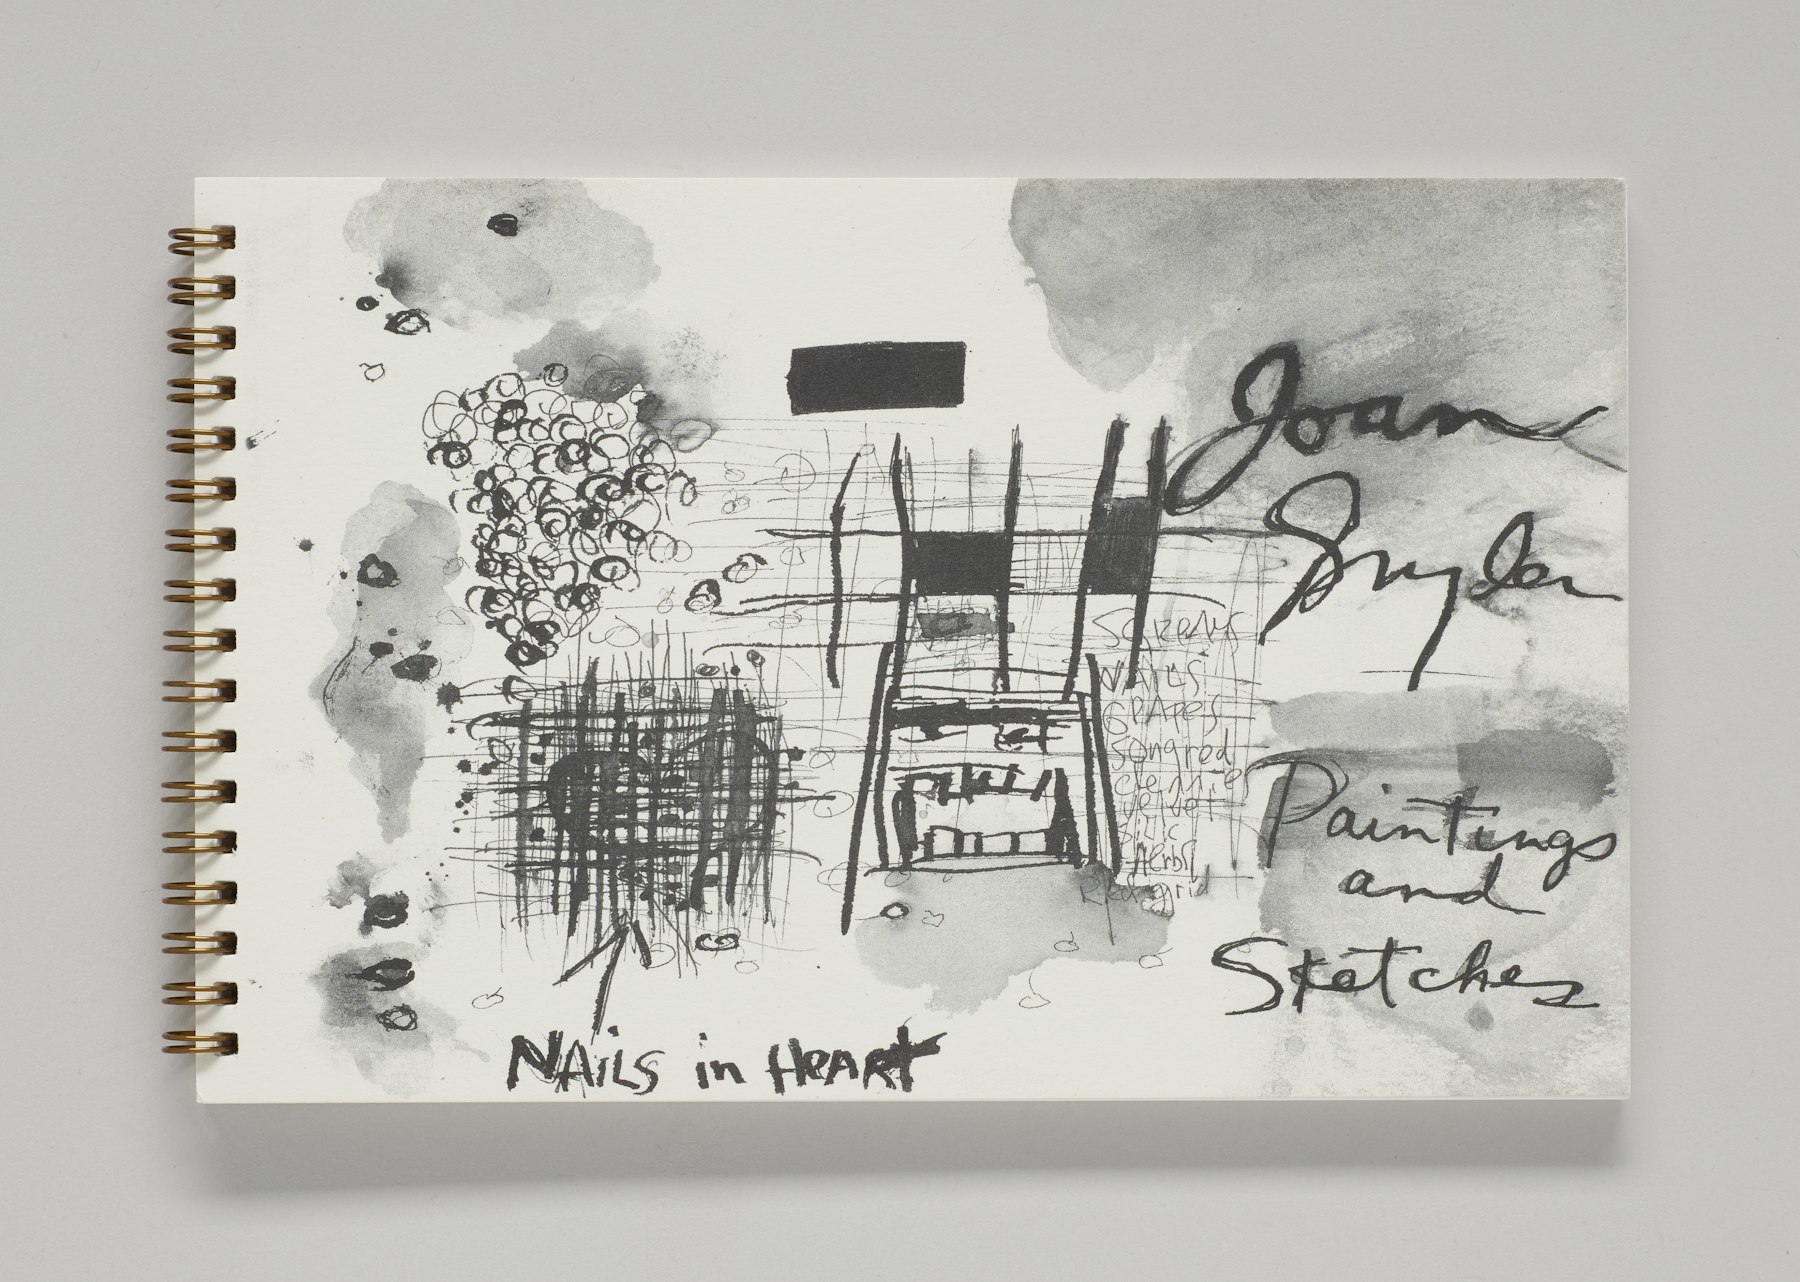 Joan
Snyder
Screams
NAILS
GRAPES
Songred
velvet
silk
Herbs
Red grid
Paintings
and
Sketches
NAiLS in HeARt